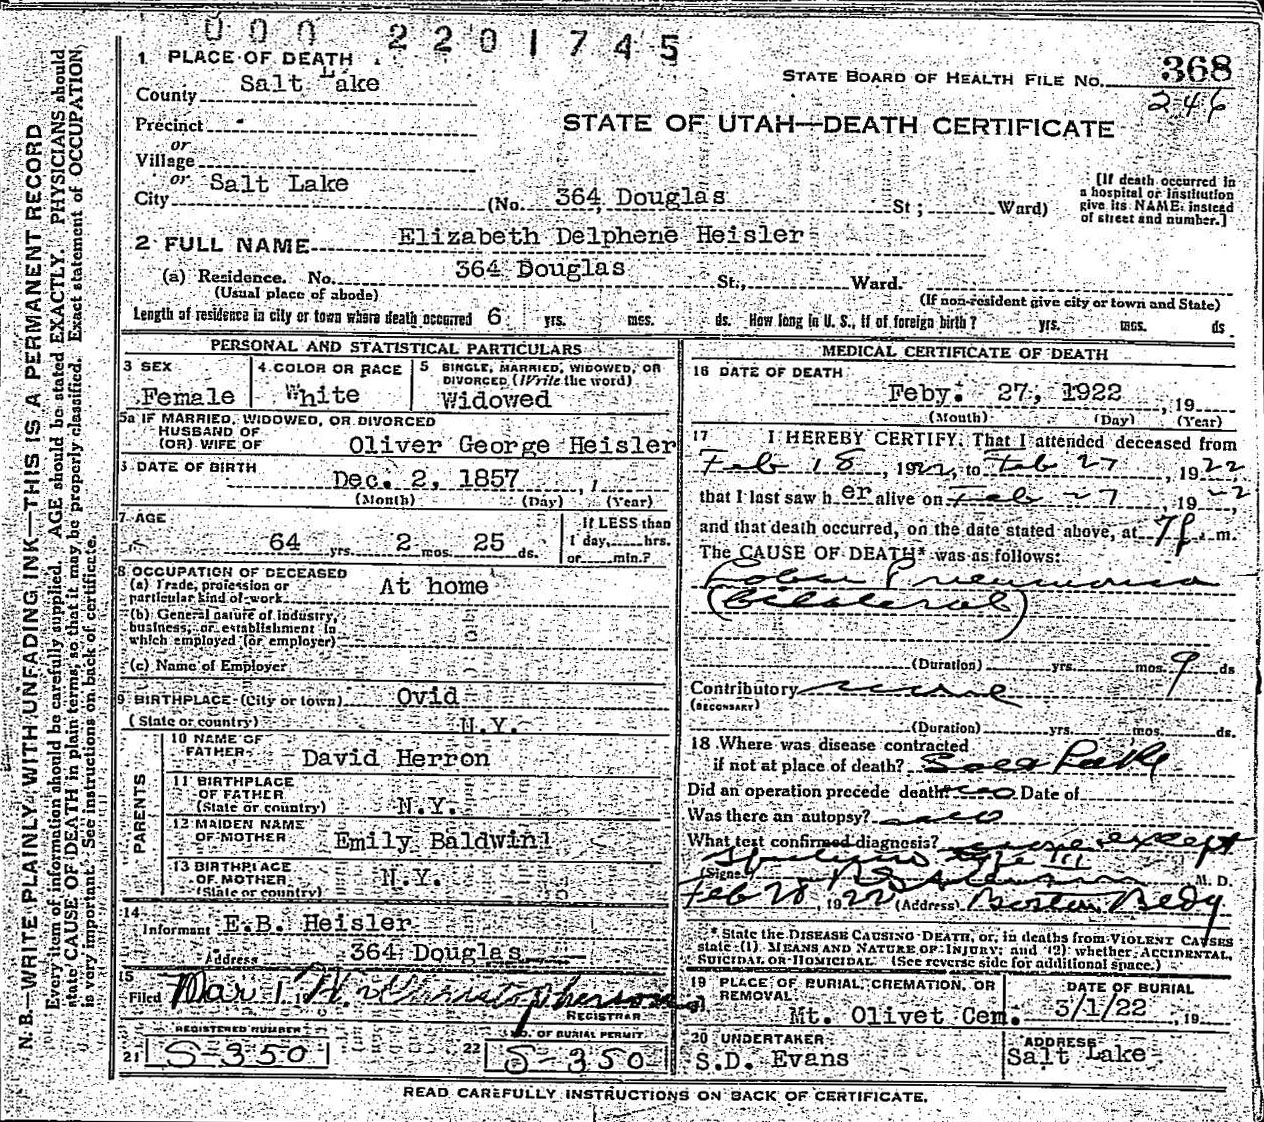 000 2201745
1 PLACE OF DEATH
STATE BOARD OF HEALTH FILE NO. 368
246
County Salt Lake
Precinct
or
Village
or
STATE OF UTAH—DEATH CERTIFICATE
City Salt Lake (No. 364 Douglas St; Ward)
[If death occurred in
a hospital or institution
give its NAME instead
of street and number.]
2 FULL NAME Elizabeth Delphene Heisler
(a) Residence. No. 364 Douglas St., Ward.
(Usual place of abode) (If non-resident give city or town and State)
Length of residence in city or town where death occurred 6 yrs. mos. ds. How long in U. S., if of foreign birth? yrs. mos. ds.
PERSONAL AND STATISTICAL PARTICULARS
3 SEX
Female
4 COLOR OR RACE
White
5 SINGLE, MARRIED, WIDOWED, OR
DIVORCED (Write the word)
Widowed
5a IF MARRIED, WIDOWED, OR DIVORCED
HUSBAND OF
(OR) WIFE OF Oliver George Heisler
6 DATE OF BIRTH
Dec. 2, 1857
(Month) (Day) (Year)
7 AGE
64 yrs. 2 mos. 25 ds.
If LESS than
1 day, hrs.
or min.?
8 OCCUPATION OF DECEASED
(a) Trade, profession or
particular kind of work At home
(b) General nature of industry,
business, or establishment in
which employed (or employer)
(c) Name of Employer
9 BIRTHPLACE (City or town) Ovid
(State or country) N.Y.
PARENTS
10 NAME OF
FATHER David Herron
11 BIRTHPLACE
OF FATHER
(State or country) N.Y.
12 MAIDEN NAME
OF MOTHER Emily Baldwin
13 BIRTHPLACE
OF MOTHER
(State or country) N.Y.
14
Informant E.B. Heisler
Address 364 Douglas
15
Filed Mar 1, 19
REGISTRAR
REGISTERED NUMBER
21 S-350
NO. OF BURIAL PERMIT
22 S-350
MEDICAL CERTIFICATE OF DEATH
16 DATE OF DEATH
Feby. 27, 1922, 19
(Month) (Day) (Year)
17 I HEREBY CERTIFY, That I attended deceased from
Feb 18, 1922, to Feb 27, 1922,
that I last saw her alive on Feb 27, 1922,
and that death occurred, on the date stated above, at 7 p. m.
The CAUSE OF DEATH* was as follows:
Lobar Pneumonia
(Bilateral)
(Duration) yrs. mos. 9 ds
Contributory none
(SECONDARY)
(Duration) yrs. mos. ds.
18 Where was disease contracted
if not at place of death? Salt Lake
Did an operation precede death? no Date of
Was there an autopsy? no
What test confirmed diagnosis? none except
Sputum type III
(Signed) M. D.
Feb 28, 1922 (Address) Boston Bldg
* State the DISEASE CAUSING DEATH, or, in deaths from VIOLENT CAUSES
state (1) MEANS AND NATURE OF INJURY; and (2) whether ACCIDENTAL,
SUICIDAL OR HOMICIDAL. (See reverse side for additional space.)
19 PLACE OF BURIAL, CREMATION, OR
REMOVAL
Mt. Olivet Cem.
DATE OF BURIAL
3/1/22, 19
20 UNDERTAKER
S.D. Evans
ADDRESS
Salt Lake
READ CAREFULLY INSTRUCTIONS ON BACK OF CERTIFICATE.
N.B.—WRITE PLAINLY WITH UNFADING INK—THIS IS A PERMANENT RECORD
Every item of information should be carefully supplied. AGE should be stated EXACTLY. PHYSICIANS should
state CAUSE OF DEATH in plain terms, so that it may be properly classified. Exact statement of OCCUPATION
is very important. See instructions on back of certificate.